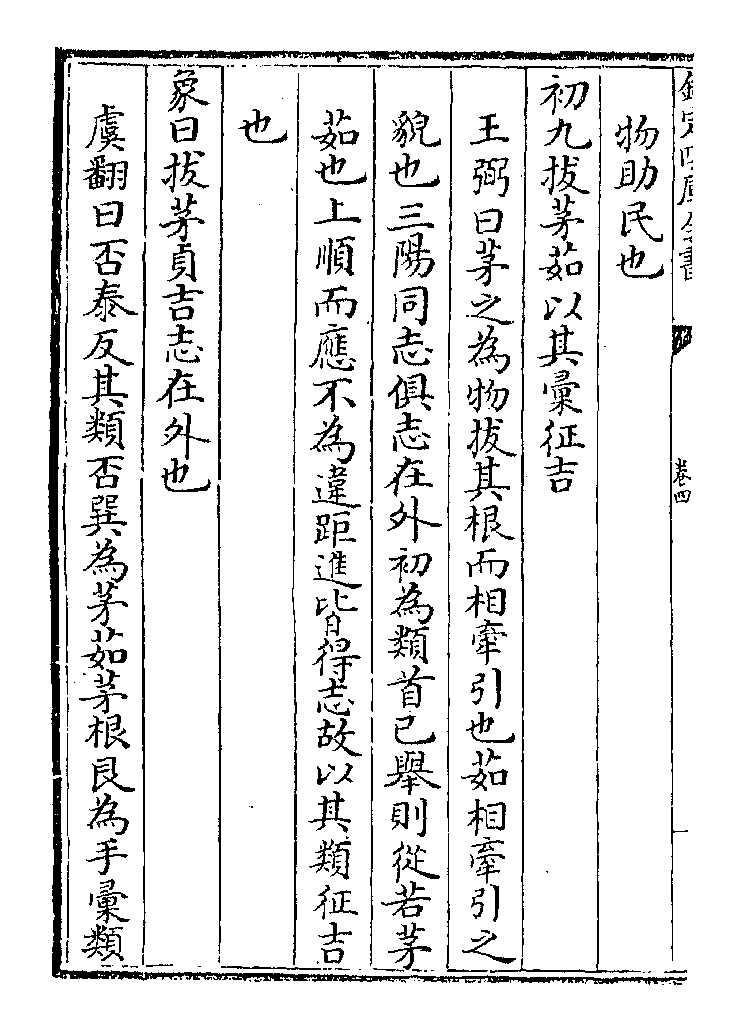 欽定四庫全書
卷四
物助民也
初九拔茅茹以其彚征吉
王弼曰茅之為物拔其根而相牽引也茹相牽引之
貌也三陽同志俱志在外初為類首已舉則從若茅
茹也上順而應不為違距進皆得志故以其類征吉
也
象曰拔茅貞吉志在外也
虞翻曰否泰反其類否巽為茅茹茅根艮為手彚類